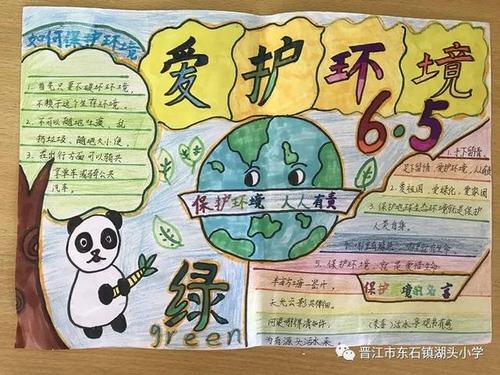 如何保护环境
爱护环境
6.5
1. 首先只要不破坏环境、
不赖于这个生存环境。
2. 不可以随地吐痰 乱
扔垃圾，随地大小便。
3. 在出行方面可以骑共
享单车或弱公共
汽车。
保护环境 人人有责
绿
green
1. 手下留情，
足下留情，爱护环境，人人有责
2. 爱祖国，爱绿化，爱家园
3. 保护地球生态环境就是保护
人类自身。
5. 保护环境，就是爱惜生命
保护环境的名言
半亩方塘一鉴开，
天光云影共徘徊。
问渠那得清如许，
为有源头活水来
（朱熹）
晋江市东石镇湖头小学